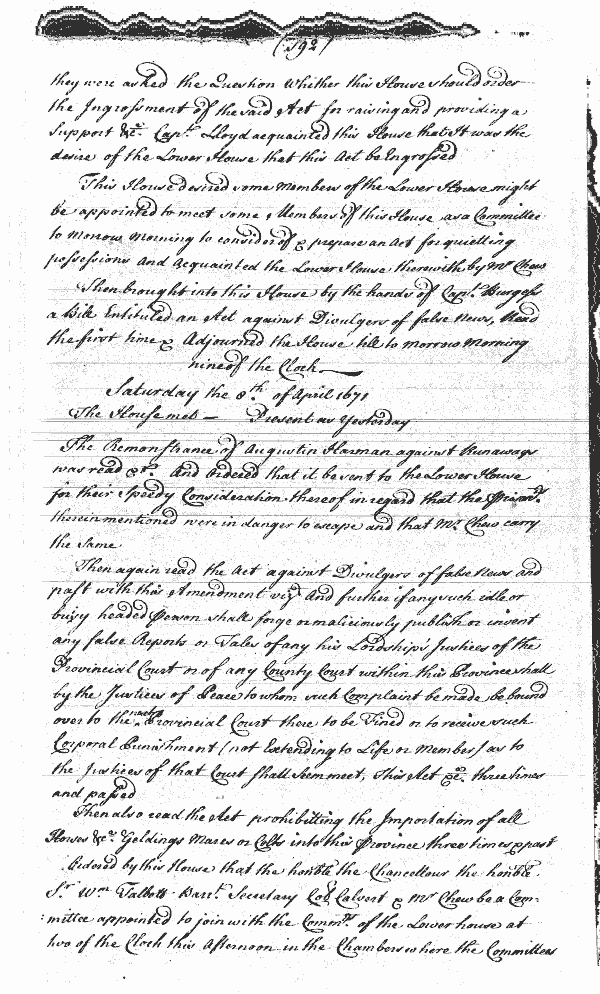 (192)
they were asked the Question Whither this House should order
the Ingrossment of the said Act for raising and providing a
Support &c. Capt. Lloyd acquainted this House that It was the
desire of the Lower House that this Act be Engrossed
This House desired some Members of the Lower House might
be appointed to meet some Members of this House as a Committee
to Morrow Morning to consider of & prepare an Act for quietting
possessions And Acquainted the Lower House therewith by Mr Chew
Then brought into this House by the hands of Capt. Burgess
a Bill Entituled an Act against Divulgers of false News, Read
the first time & Adjourned the House till to Morrow Morning
nine of the Clock
Saturday the 8th. of April 1671
The House met — Present as Yesterday
The Remonstrance of Augustin Harman against Runaways
was read &c. And Ordered that it be sent to the Lower House
for their Speedy Consideration thereof in regard that the Prisonrs.
therein mentioned were in danger to escape and that Mr. Chew carry
the same
Then again read the Act against Divulgers of false News and
past with this Amendment vizt And further if any such idle or
busy headed Person shall forge or maliciously publish or invent
any false Reports or Tales of any his Lordship's Justices of the
Provincial Court or of any County Court within this Province shall
by the Justices of Peace to whom such Complaint be made be bound
over to the next Provincial Court there to be Fined or to receive such
Corporal Punishment (not Extending to Life or Member) as to
the Justices of that Court shall seem meet, This Act &c. three times
and passed
Then also read the Act prohibitting the Importation of all
Horses &c. Geldings Mares or Colts into this Province three times & past
Ordered by this House that the honble the Chancellour the honble.
Sr. Wm Talbott Barrt. Secretary Col Calvert & Mr Chew be a Com-
mittee appointed to join with the Commrs. of the Lower house at
two of the Clock this Afternoon in the Chamber where the Committees